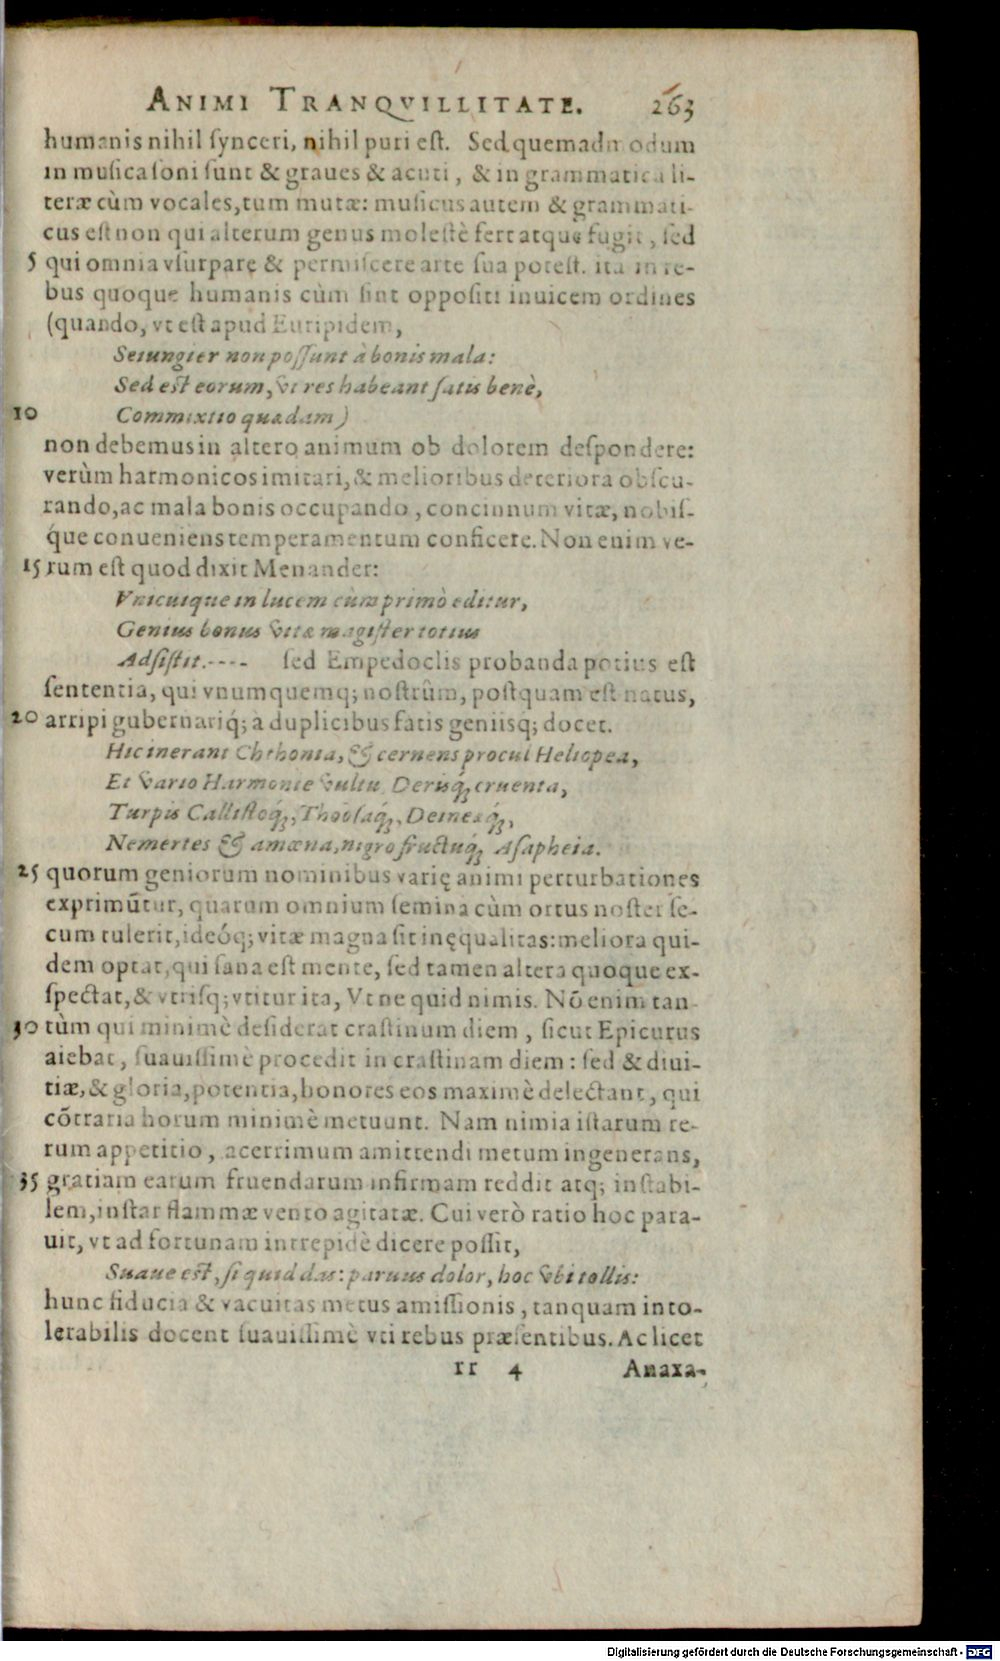 ANIMI TRANQVILLITATE. 263
humanis nihil ſynceri, nihil puri eſt. Sed quemadmodum
in muſica ſoni ſunt & graues & acuti, & in grammatica li-
teræ cùm vocales, tum mutæ: muſicus autem & grammati-
cus eſt non qui alterum genus moleſtè fert atque fugit, ſed
5 qui omnia vſurpare & permiſcere arte ſua poteſt. ita in re-
bus quoque humanis cùm ſint oppoſiti inuicem ordines
(quando, vt eſt apud Euripidem,
Seiungier non poſſunt à bonis mala:
Sed eſt eorum, vt res habeant ſatis benè,
10 Commixtio quædam)
non debemus in altero animum ob dolorem deſpondere:
verùm harmonicos imitari, & melioribus deteriora obſcu-
rando, ac mala bonis occupando, concinnum vitæ, nobiſ-
q́ue conueniens temperamentum conficere. Non enim ve-
15 rum eſt quod dixit Menander:
Vnicuique in lucem cùm primò editur,
Genius bonus vitæ magiſter totius
Adſiſtit.---- ſed Empedoclis probanda potius eſt
ſententia, qui vnumquemq; noſtrûm, poſtquam eſt natus,
20 arripi gubernariq́; a duplicibus fatis geniisq; docet.
Hic inerant Chthonia, & cernens procul Heliopea,
Et vario Harmonie vultu, Derisq́; cruenta,
Turpis Calliſtoq́;, Thoòſaq́;, Deineaq́;,
Nemertes & amœna, nigro fructuq́; Aſapheia.
25 quorum geniorum nominibus varię animi perturbationes
exprimũtur, quarum omnium ſemina cùm ortus noſter ſe-
cum tulerit, ideóq; vitæ magna ſit inęqualitas: meliora qui-
dem optat, qui ſana eſt mente, ſed tamen altera quoque ex-
ſpectat, & vtriſq; vtitur ita, Vt ne quid nimis. Nõ enim tan-
30 tùm qui minimè deſiderat craſtinum diem, ſicut Epicurus
aiebat, ſuauiſſimè procedit in craſtinam diem: ſed & diui-
tiæ, & gloria, potentia, honores eos maximè delectant, qui
cõtraria horum minimè metuunt. Nam nimia iſtarum re-
rum appetitio, acerrimum amittendi metum ingenerans,
35 gratiam earum fruendarum infirmam reddit atq; inſtabi-
lem, inſtar flammæ vento agitatæ. Cui verò ratio hoc para-
uit, vt ad fortunam intrepidè dicere poſſit,
Suaue eſt, ſi quid das: paruus dolor, hoc vbi tollis:
hunc fiducia & vacuitas metus amiſſionis, tanquam into-
lerabilis docent ſuauiſſimè vti rebus præſentibus. Ac licet
rr 4 Anaxa-
Digitalisierung gefördert durch die Deutsche Forschungsgemeinschaft - DFG